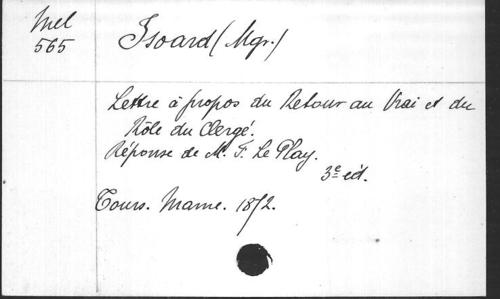 Mel
565
Isoard (Mgr.)
Lettre à propos du Retour au Vrai et du
Rôle du Clergé.
Réponse de M. F. Le Play.
3e éd.
Tours. Mame. 1872.